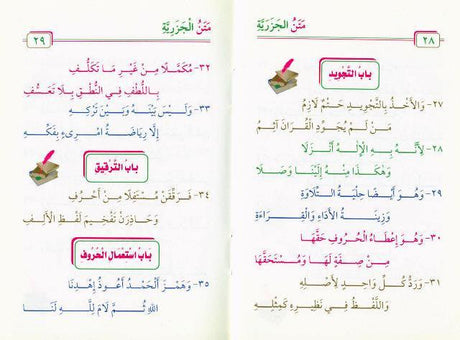 مَتْنُ الْجَزَرِيَّةِ
٢٨
بَابُ التَّجْوِيدِ
٢٧- وَالأَخْذُ بِالتَّجْوِيدِ حَتْمٌ لَازِمُ
مَنْ لَمْ يُجَوِّدِ الْقُرَانَ آثِمُ
٢٨- لِأَنَّهُ بِهِ الإِلَهُ أَنْزَلَا
وَهَكَذَا مِنْهُ إِلَيْنَا وَصَلَا
٢٩- وَهُوَ أَيْضًا حِلْيَةُ التِّلَاوَةِ
وَزِينَةُ الأَدَاءِ وَالْقِرَاءَةِ
٣٠- وَهُوَ إِعْطَاءُ الْحُرُوفِ حَقَّهَا
مِنْ صِفَةٍ لَهَا وَمُسْتَحَقَّهَا
٣١- وَرَدُّ كُلِّ وَاحِدٍ لِأَصْلِهِ
وَاللَّفْظُ فِي نَظِيرِهِ كَمِثْلِهِ
مَتْنُ الْجَزَرِيَّةِ
٢٩
٣٢- مُكَمَّلًا مِنْ غَيْرِ مَا تَكَلُّفِ
بِاللُّطْفِ فِي النُّطْقِ بِلَا تَعَسُّفِ
٣٣- وَلَيْسَ بَيْنَهُ وَبَيْنَ تَرْكِهِ
إِلَّا رِيَاضَةُ امْرِئٍ بِفَكِّهِ
بَابُ التَّرْقِيقِ
٣٤- فَرَقِّقَنْ مُسْتَفِلًا مِنْ أَحْرُفِ
وَحَاذِرَنْ تَفْخِيمَ لَفْظِ الأَلِفِ
بَابُ اسْتِعْمَالِ الْحُرُوفِ
٣٥- وَهَمْزَ أَلْحَمْدُ أَعُوذُ إِهْدِنَا
اللهِ ثُمَّ لَامَ لِلَّهِ لَنَا